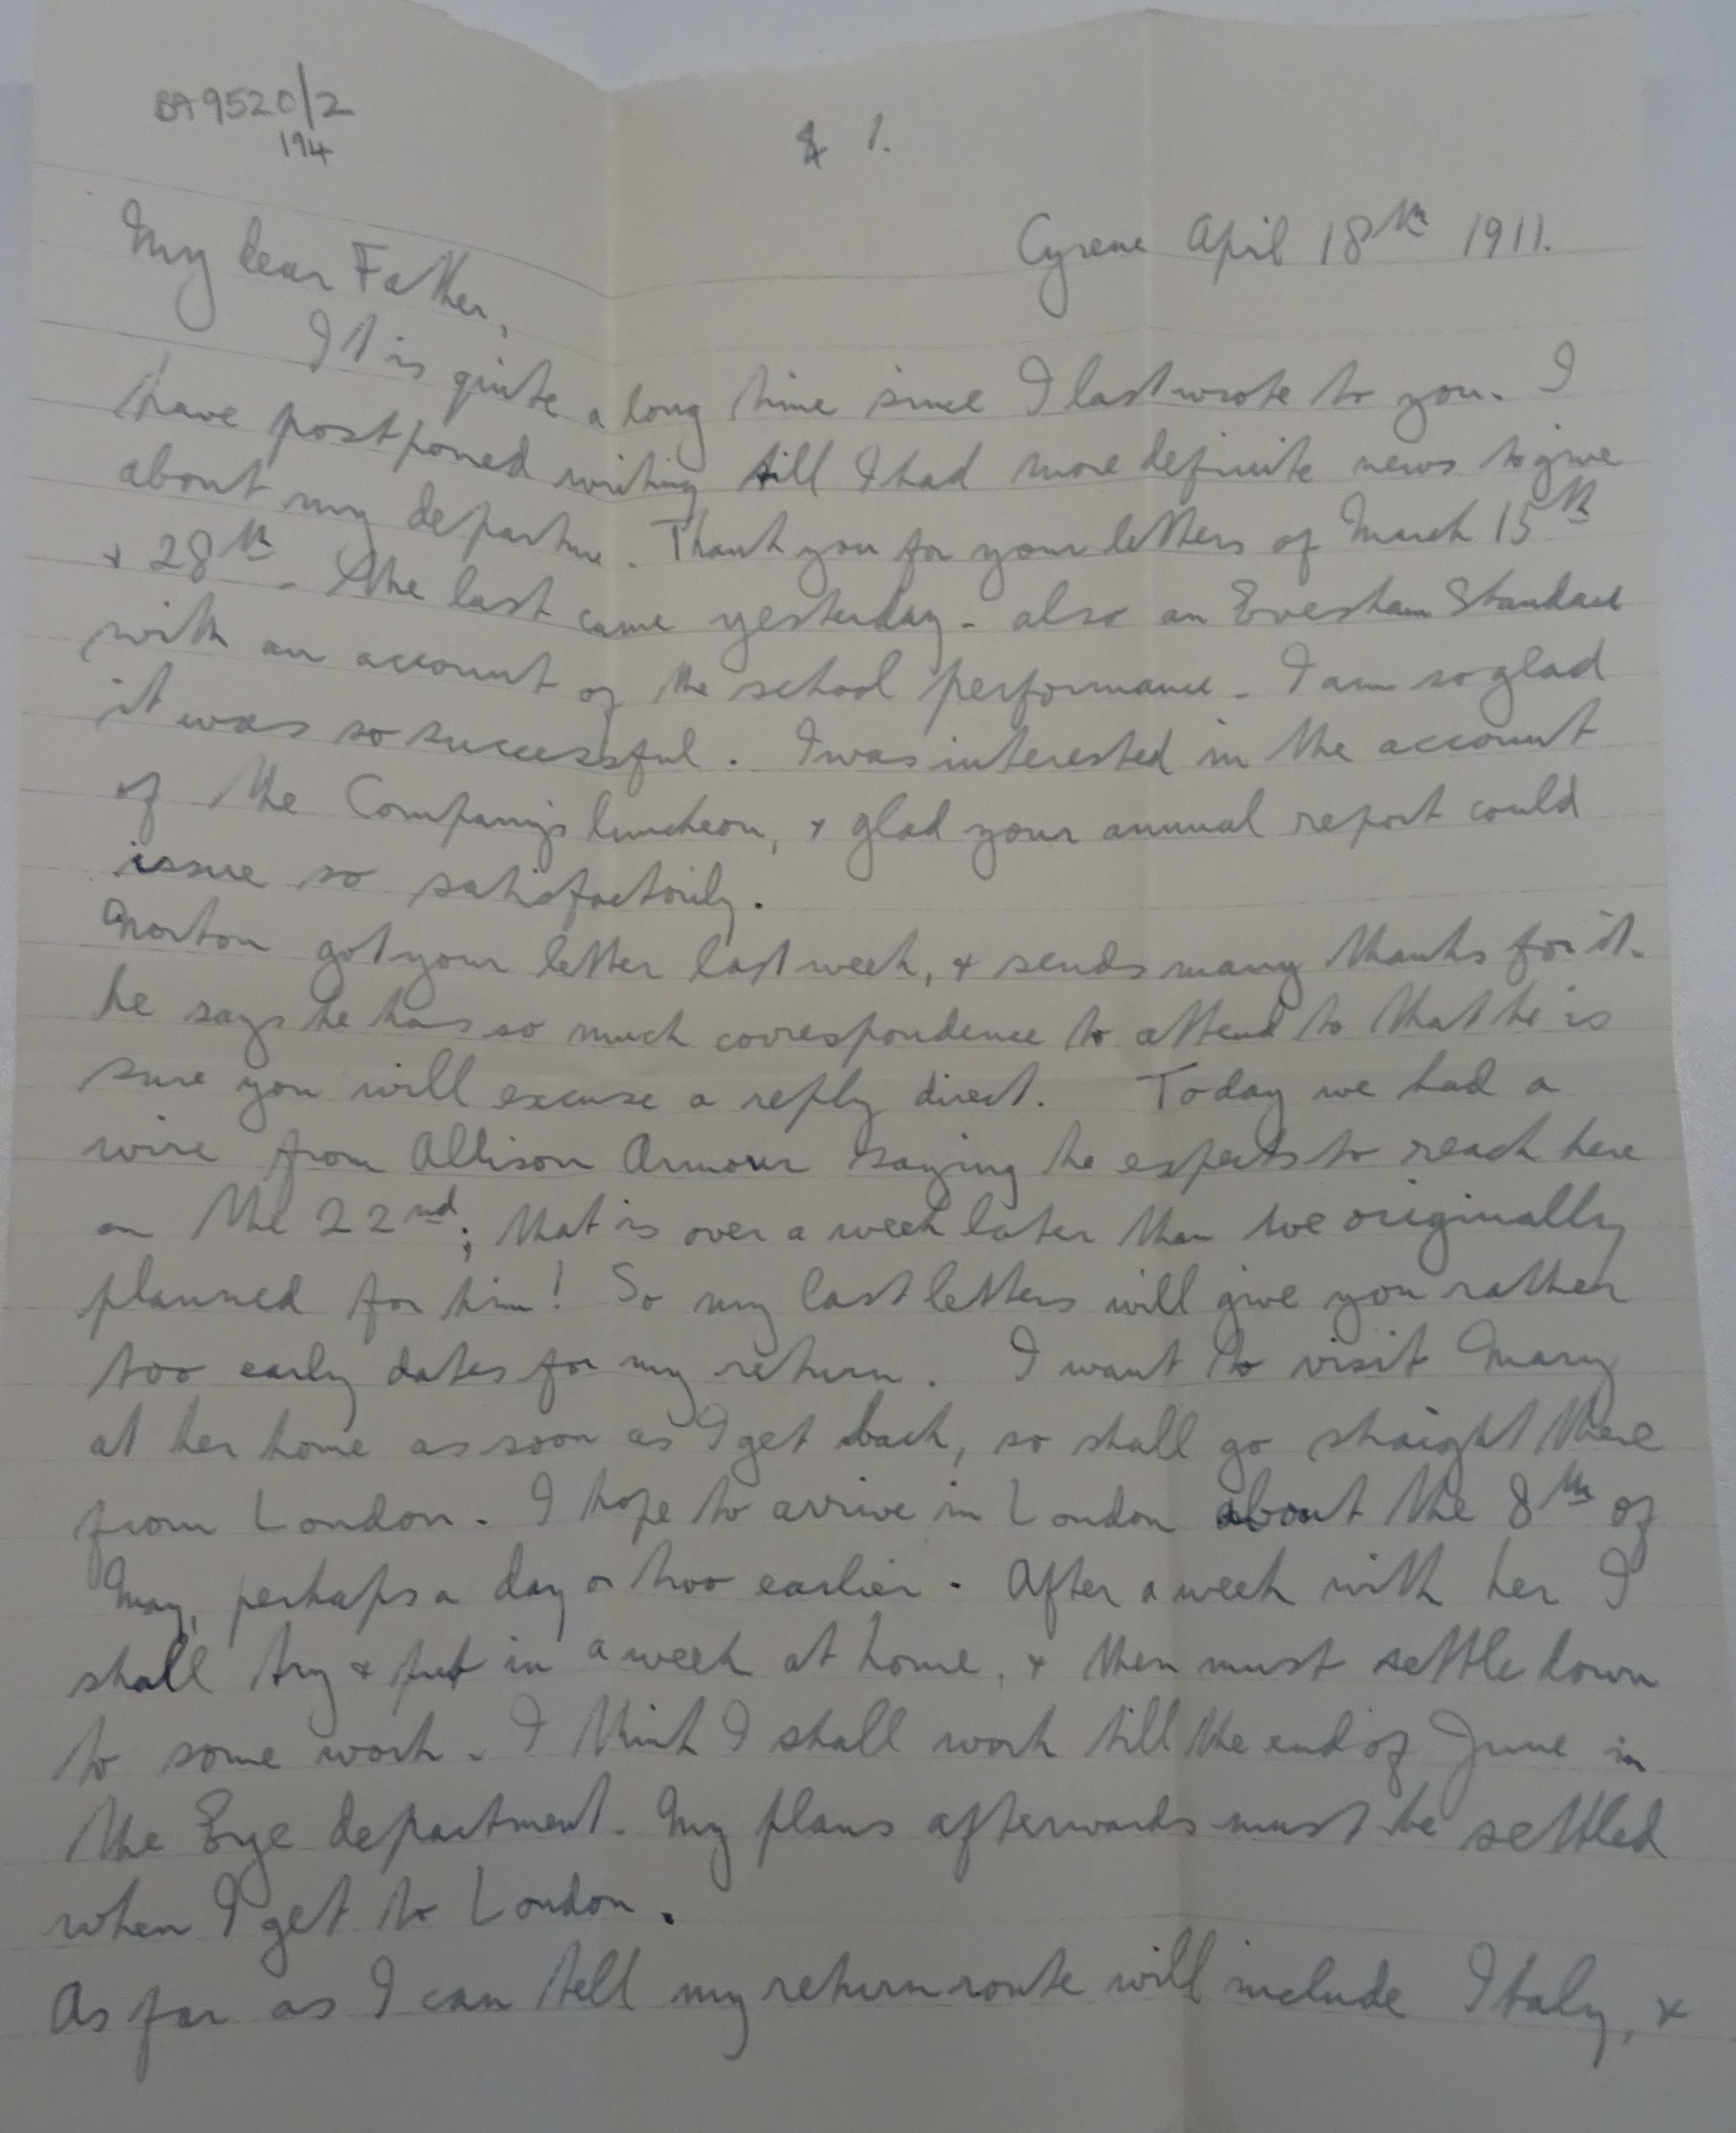 BA 9520/2
194
& 1.
Cyrene April 18th 1911.
My dear Father,
It is quite a long time since I last wrote to you. I
have postponed writing till I had more definite news to give
about my departure. Thank you for your letters of March 15th
+ 28th. The last came yesterday - also an Evesham Standard
with an account of the school performance. I am so glad
it was so successful. I was interested in the account
of the Company's luncheon, + glad your annual report could
issue so satisfactorily.
Norton got your letter last week, + sends many thanks for it.
he says he has so much correspondence to attend to that he is
sure you will excuse a reply direct. Today we had a
wire from Allison Armour saying he expects to reach here
on the 22nd; that is over a week later than we originally
planned for him! So my last letters will give you rather
too early dates for my return. I want to visit Mary
at her home as soon as I get back, so shall go straight there
from London. I hope to arrive in London about the 8th of
May, perhaps a day or two earlier. After a week with her I
shall try + put in a week at home, + then must settle down
to some work. I think I shall work till the end of June in
the Eye department. My plans afterwards must be settled
when I get to London.
As far as I can tell my return route will include Italy, +